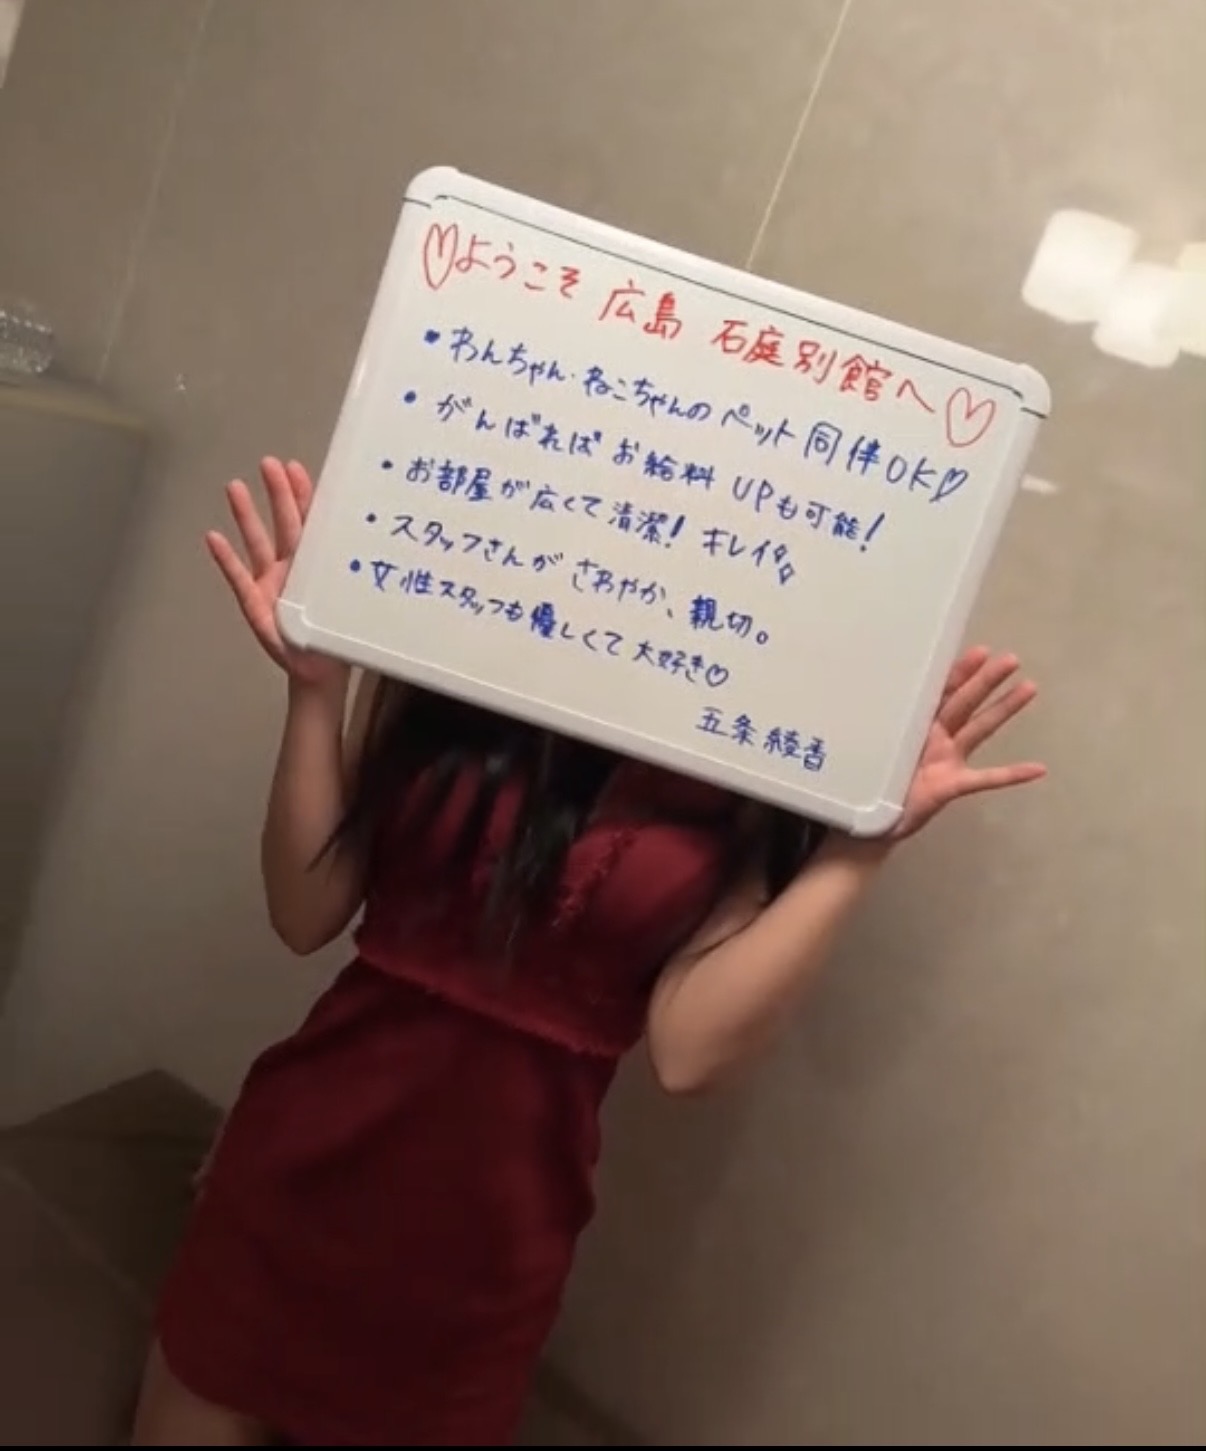 ♡ようこそ 広島 石庭別館へ♡
• わんちゃん・ねこちゃんのペット同伴OK♡
• がんばればお給料UPも可能!
• お部屋が広くて清潔! キレイ
• スタッフさんがさわやか、親切。
• 女性スタッフも優しくて大好き♡
五条綾香